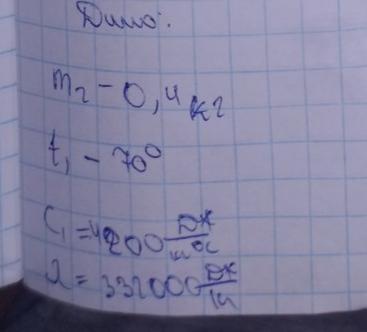 Дано:
m₂ - 0,4 кг
t₁ - 70°
C₁ = 4200 Дж/кг°C
λ = 332000 Дж/кг